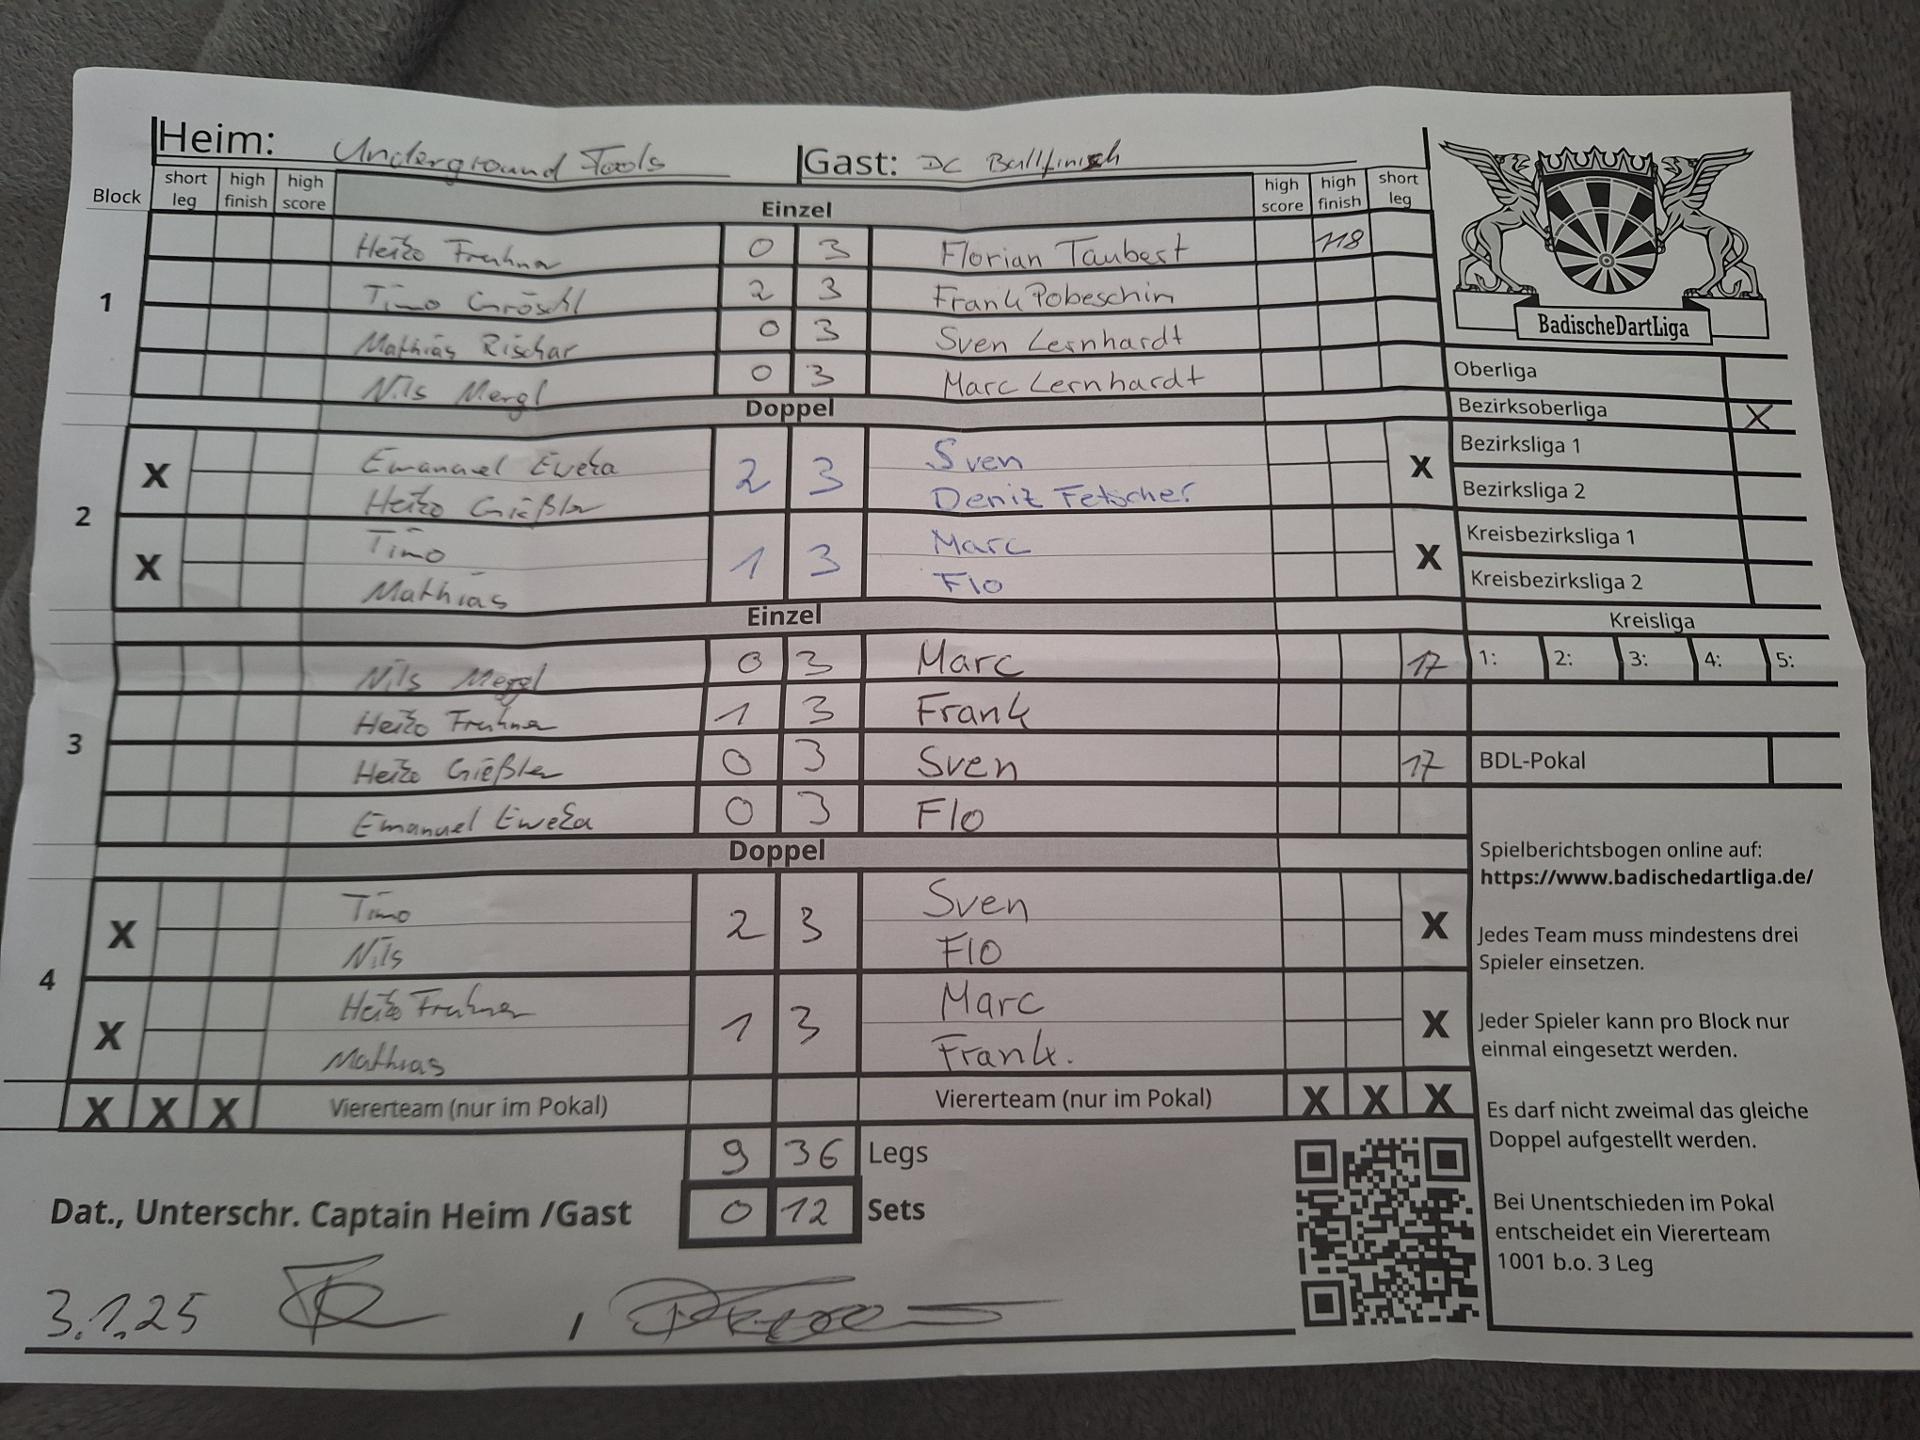 Heim: Underground Tools Gast: DC Bullfinish
Block short leg high finish high score Einzel high score high finish short leg
1
Heiko Fruhner 0 3 Florian Taubert 118
Timo Gröschl 2 3 Frank Pobeschin
Mathias Rischar 0 3 Sven Lernhardt
Nils Mergl 0 3 Marc Lernhardt
Doppel
2
X Emanuel Eweka 2 3 Sven X
Heiko Gießler Deniz Fetscher
X Timo 1 3 Marc X
Mathias Flo
Einzel
3
Nils Mergl 0 3 Marc 17
Heiko Fruhner 1 3 Frank
Heiko Gießler 0 3 Sven 17
Emanuel Eweka 0 3 Flo
Doppel
4
X Timo 2 3 Sven X
Nils Flo
X Heiko Fruhner 1 3 Marc X
Mathias Frank.
X X X Viererteam (nur im Pokal) Viererteam (nur im Pokal) X X X
9 36 Legs
0 12 Sets
Dat., Unterschr. Captain Heim /Gast
3.1.25 ,
BadischeDartLiga
Oberliga
Bezirksoberliga X
Bezirksliga 1
Bezirksliga 2
Kreisbezirksliga 1
Kreisbezirksliga 2
Kreisliga
1: 2: 3: 4: 5:
BDL-Pokal
Spielberichtsbogen online auf:
https://www.badischedartliga.de/
Jedes Team muss mindestens drei
Spieler einsetzen.
Jeder Spieler kann pro Block nur
einmal eingesetzt werden.
Es darf nicht zweimal das gleiche
Doppel aufgestellt werden.
Bei Unentschieden im Pokal
entscheidet ein Viererteam
1001 b.o. 3 Leg